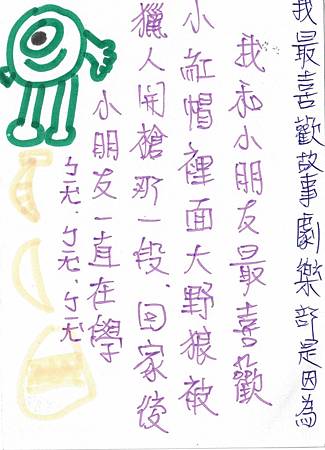 我最喜歡故事劇樂部是因為
我和小朋友最喜歡
小紅帽裡面大野狼被
獵人開槍那一段.回家後
小朋友一直在學
ㄅㄧㄤ.ㄅㄧㄤ.ㄅㄧㄤ